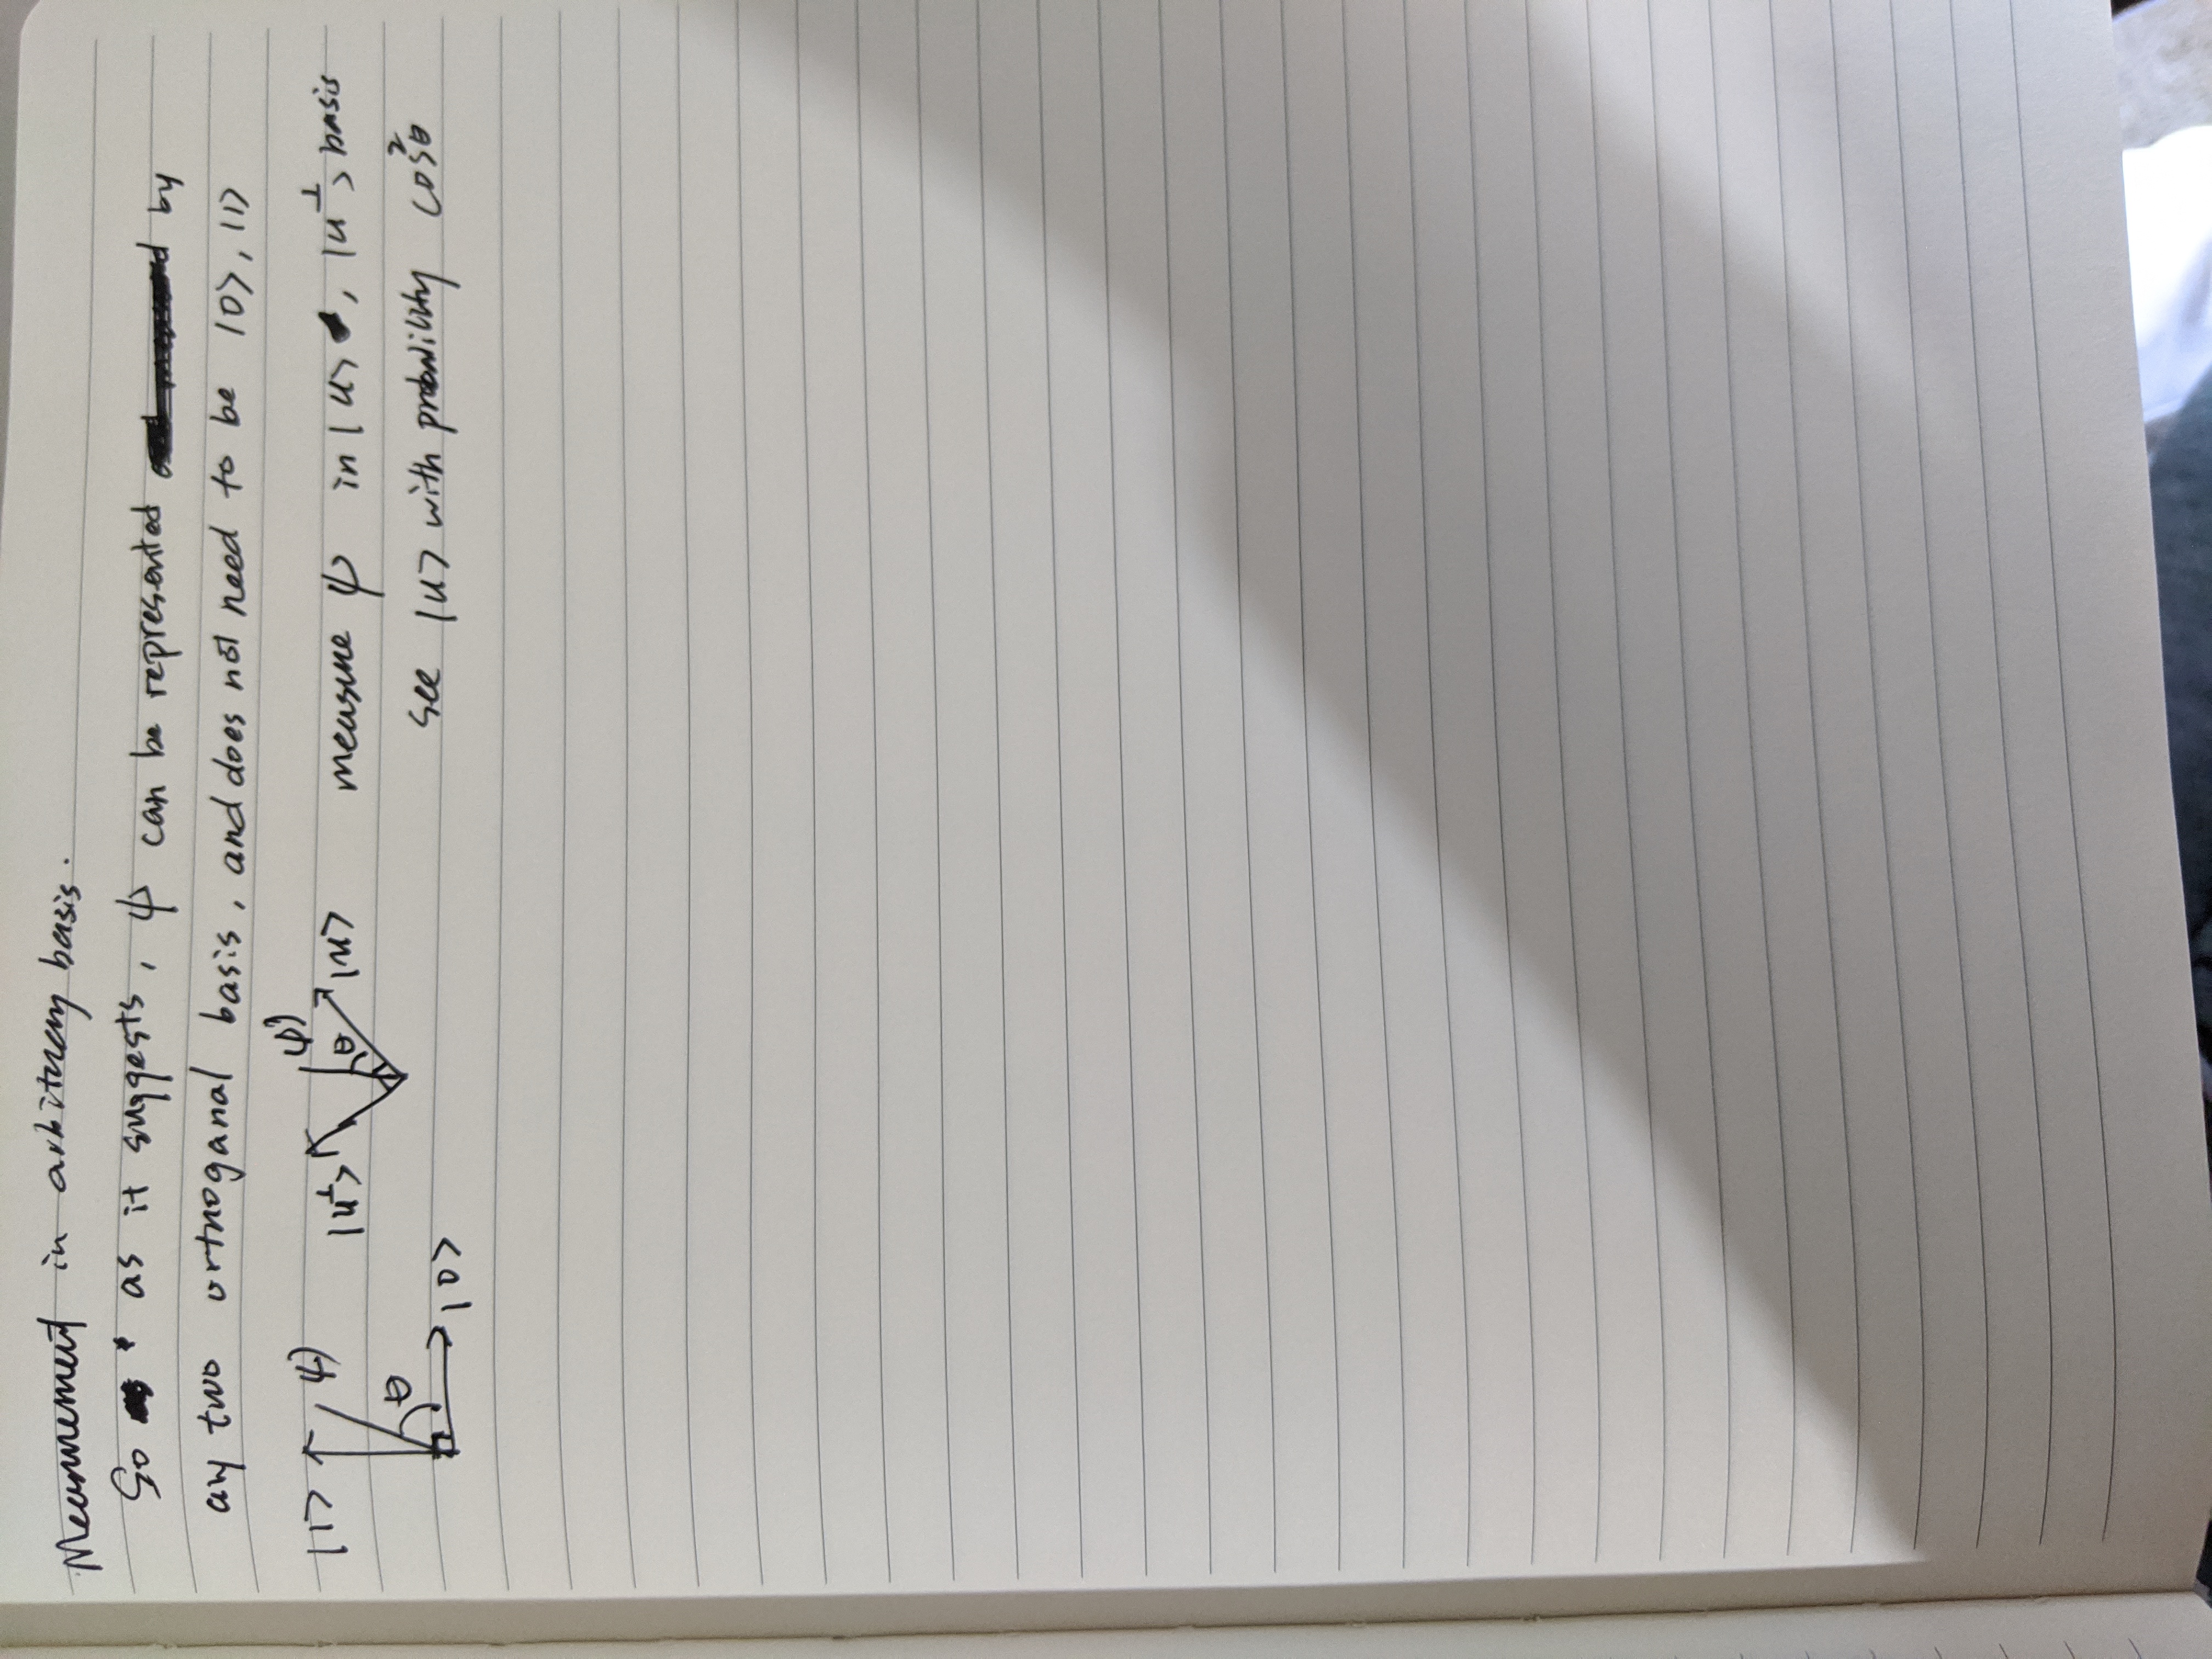 Measurement in arbitrary basis.
So as it suggests, ψ can be represented by
any two orthoganal basis, and does not need to be |0>, |1>
|1> ψ) |u⊥> ψ) θ |u> measure ψ in |u>, |u⊥> basis
θ |0> see |u> with probability cos²θ